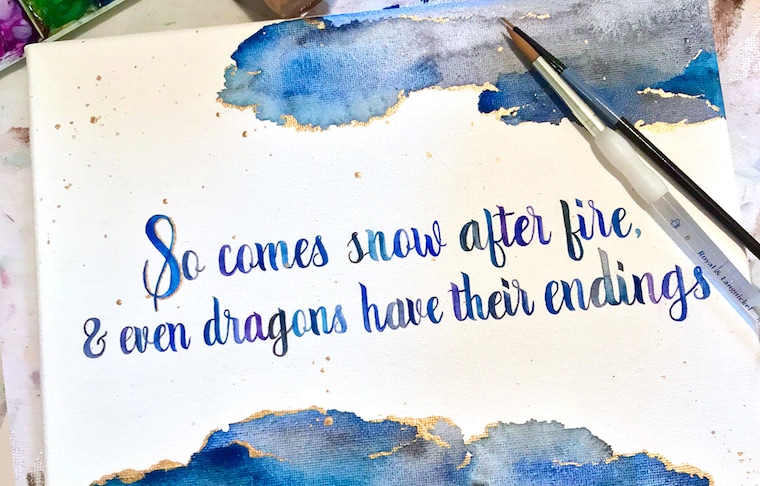 So comes snow after fire,
& even dragons have their endings
6 Royal & Langnickel